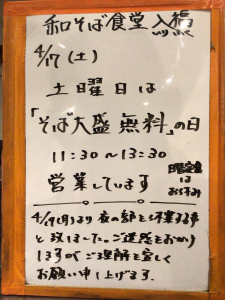 和そば食堂 入福
いりふく
4/17(土)
土曜日は
「そば大盛無料」の日
11:30〜13:30
営業しています
日曜定食は
お休み
4/19(月)より夜の部を休業する事
と致しました。ご迷惑をおかけ
しますが ご理解を宜しく
お願い申し上げます。